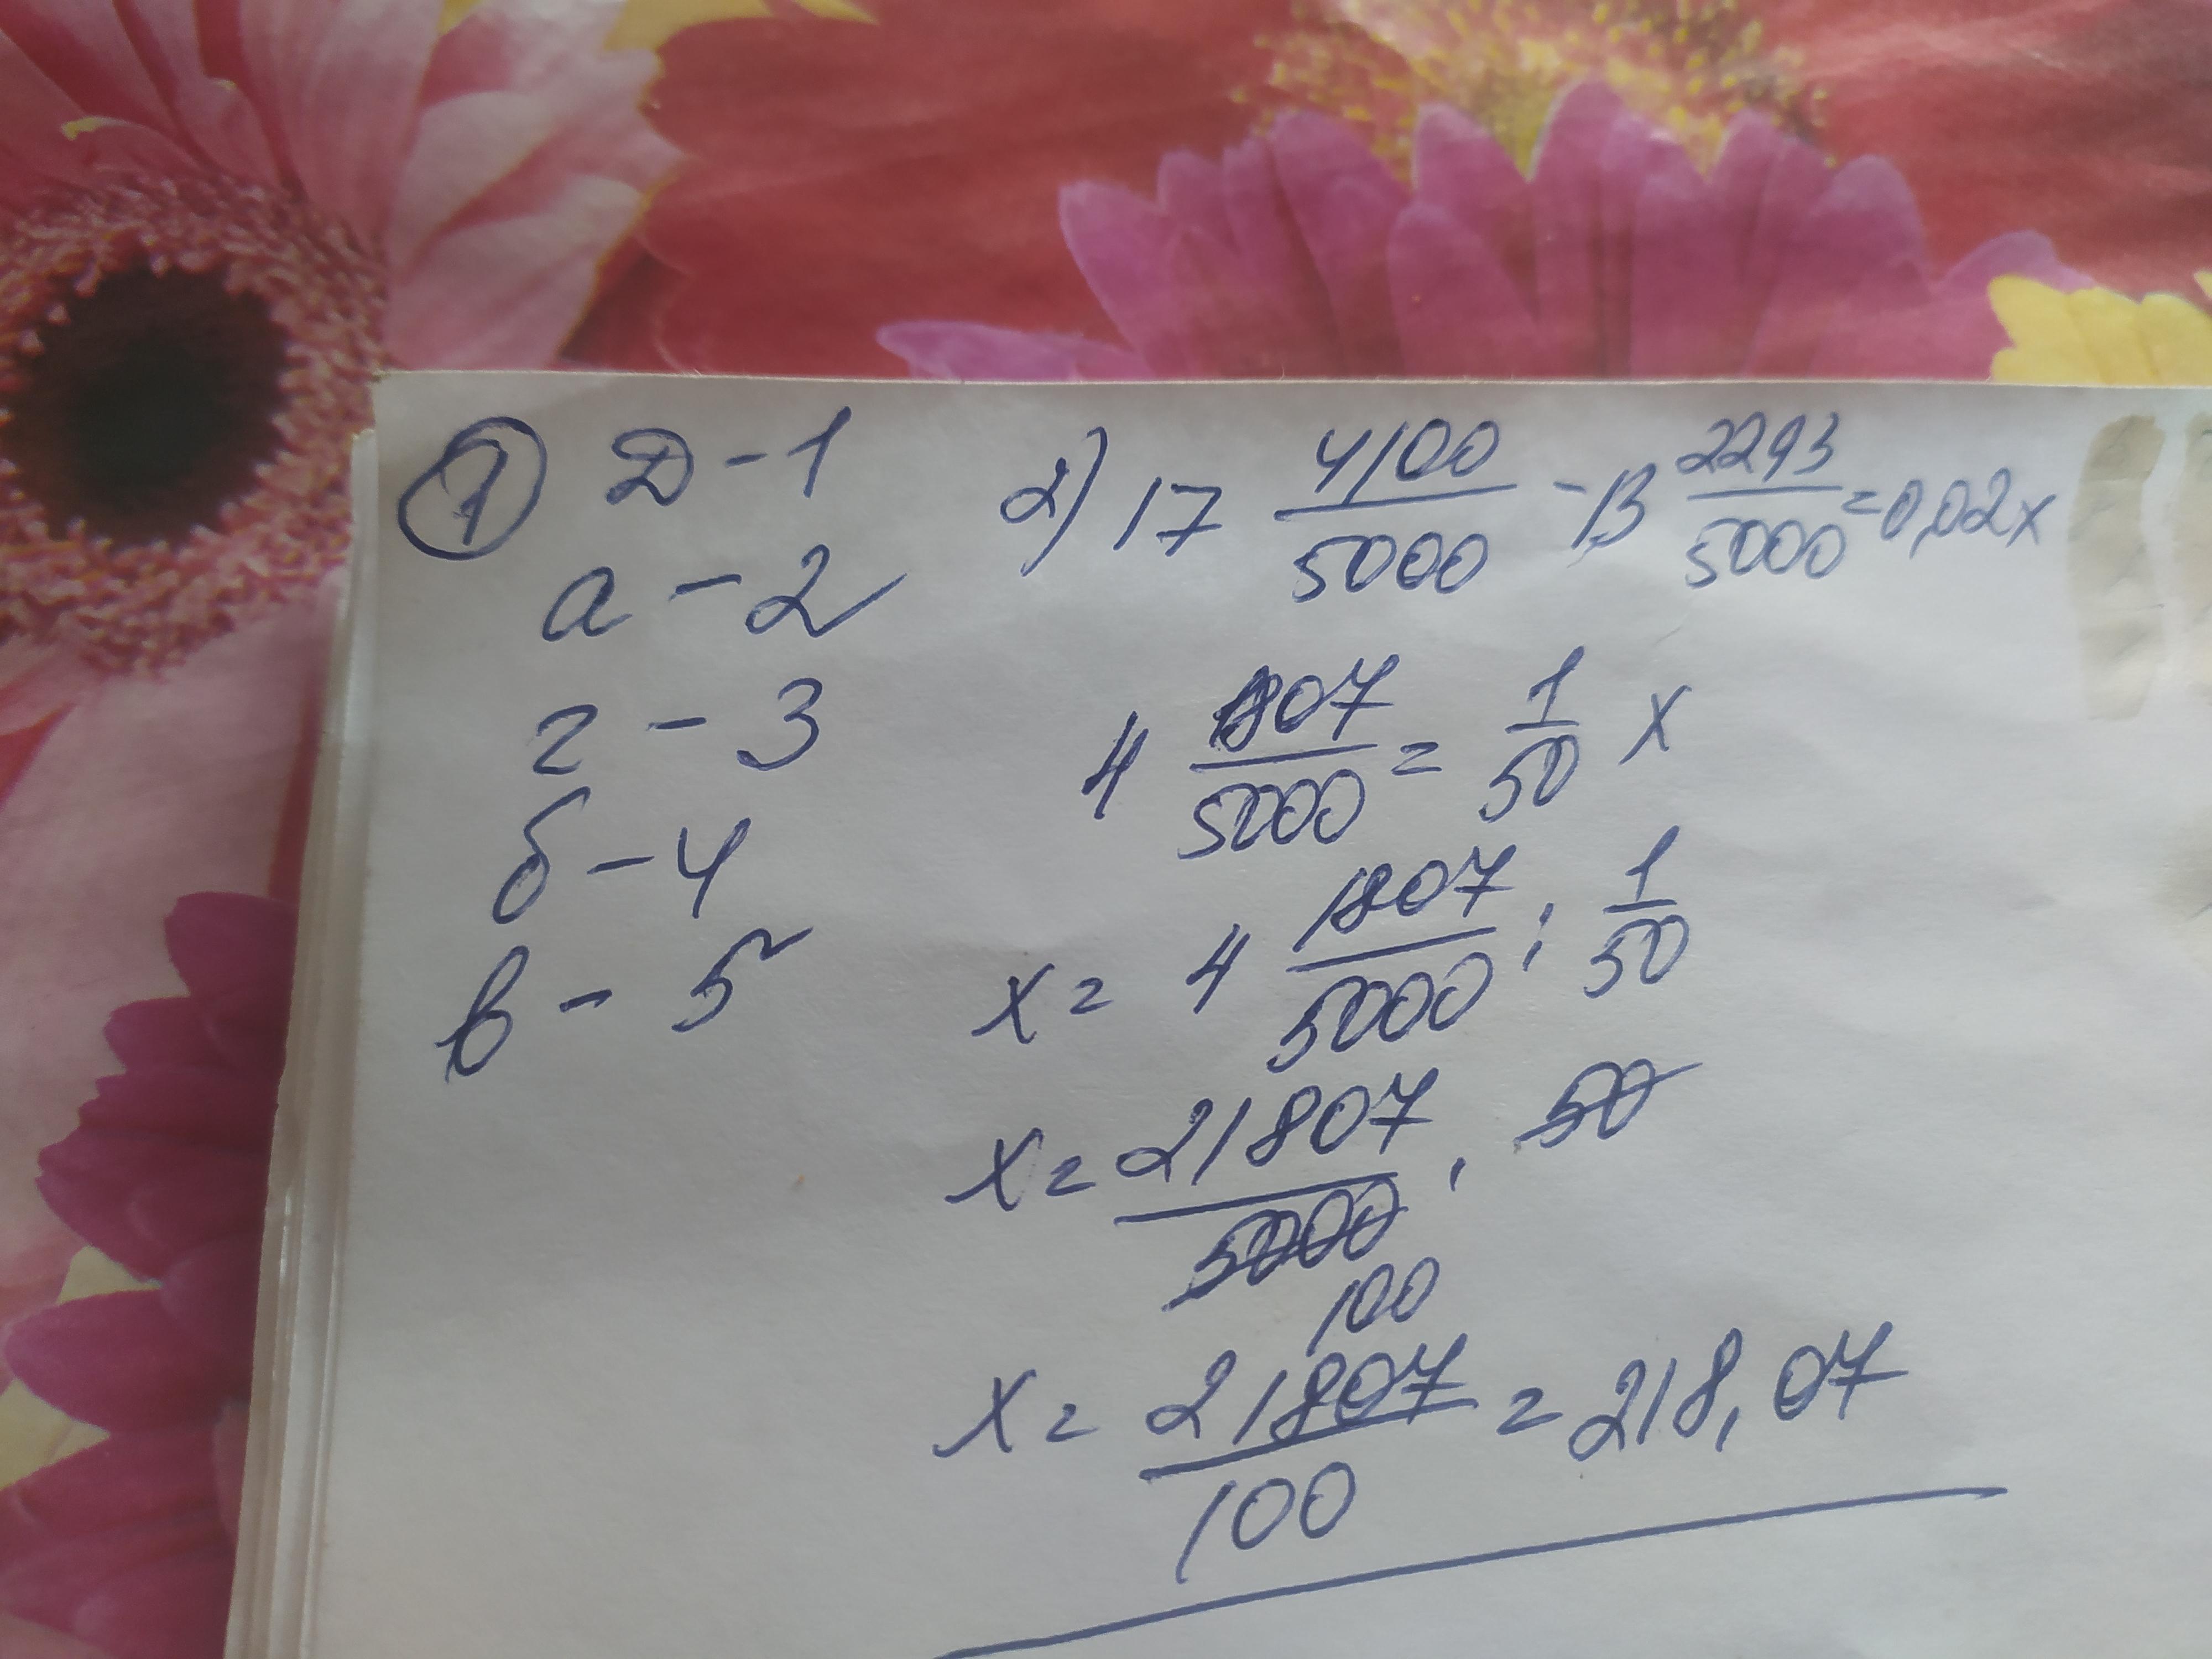 1 Д - 1
а - 2
г - 3
б - 4
в - 5
2) 17 4100/5000 - 13 2293/5000 = 0,02x
4 1807/5000 = 1/50 x
x = 4 1807/5000 : 1/50
x = 21807/5000 · 50
100
x = 21807/100 = 218,07